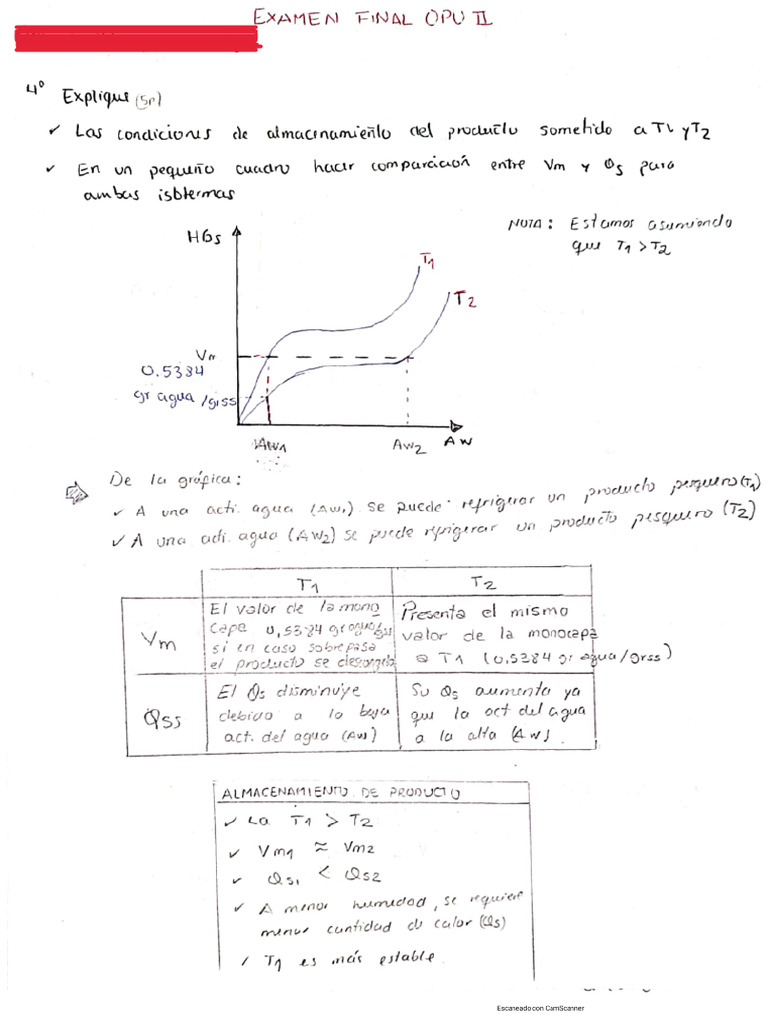 EXAMEN FINAL OPU II
4° Explique (5p)
✓ Las condiciones de almacenamiento del producto sometido a T1 y T2
✓ En un pequeño cuadro hacer comparación entre Vm y Qs para
ambas isotermas
NOTA: Estamos asumiendo
que T1 > T2
HGs
T1
T2
Vm
0.5384
gr agua/grss
Aw1
Aw2
Aw
De la gráfica:
✓ A una acti. agua (Aw1) se puede refrigerar un producto pesquero (T1)
✓ A una acti. agua (Aw2) se puede refrigerar un producto pesquero (T2)
T1
T2
Vm
El valor de la mono
capa 0,5384 gr agua/grss
si en caso sobrepasa
el producto se descongela
Presenta el mismo
valor de la monocapa
a T1 (0,5384 gr agua/grss)
Qss
El Qs disminuye
debido a la baja
act. del agua (Aw)
Su Qs aumenta ya
que la act del agua
a la alta (Aw).
ALMACENAMIENTO DE PRODUCTO
✓ La T1 > T2
✓ Vm1 ≈ Vm2
✓ Qs1 < Qs2
✓ A menor humedad, se requiere
menor cantidad de calor (Qs)
✓ T1 es más estable
Escaneado con CamScanner